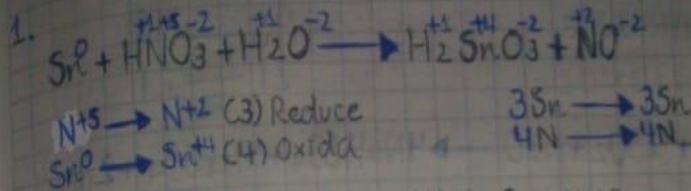 1.
Sn⁰ + H⁺¹N⁺⁵O₃⁻² + H₂⁺¹O⁻² → H₂⁺¹Sn⁺⁴O₃⁻² + N⁺²O⁻²
N⁺⁵ → N⁺² (3) Reduce
Sn⁰ → Sn⁺⁴ (4) Oxida
3Sn → 3Sn
4N → 4N